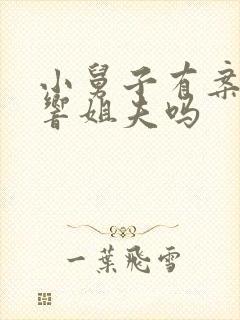 小舅子有案
响姐夫吗
一葉飛雪